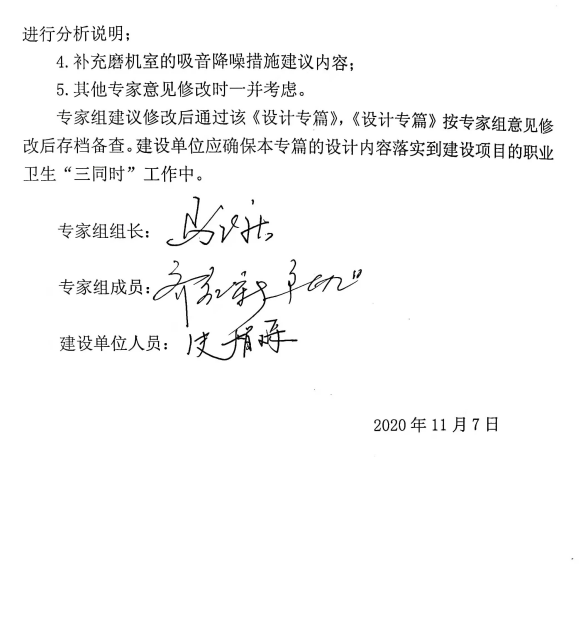 进行分析说明；
4.补充磨机室的吸音降噪措施建议内容；
5.其他专家意见修改时一并考虑。
专家组建议修改后通过该《设计专篇》，《设计专篇》按专家组意见修
改后存档备查。建设单位应确保本专篇的设计内容落实到建设项目的职业
卫生“三同时”工作中。
专家组组长：
专家组成员：
建设单位人员：
2020年11月7日